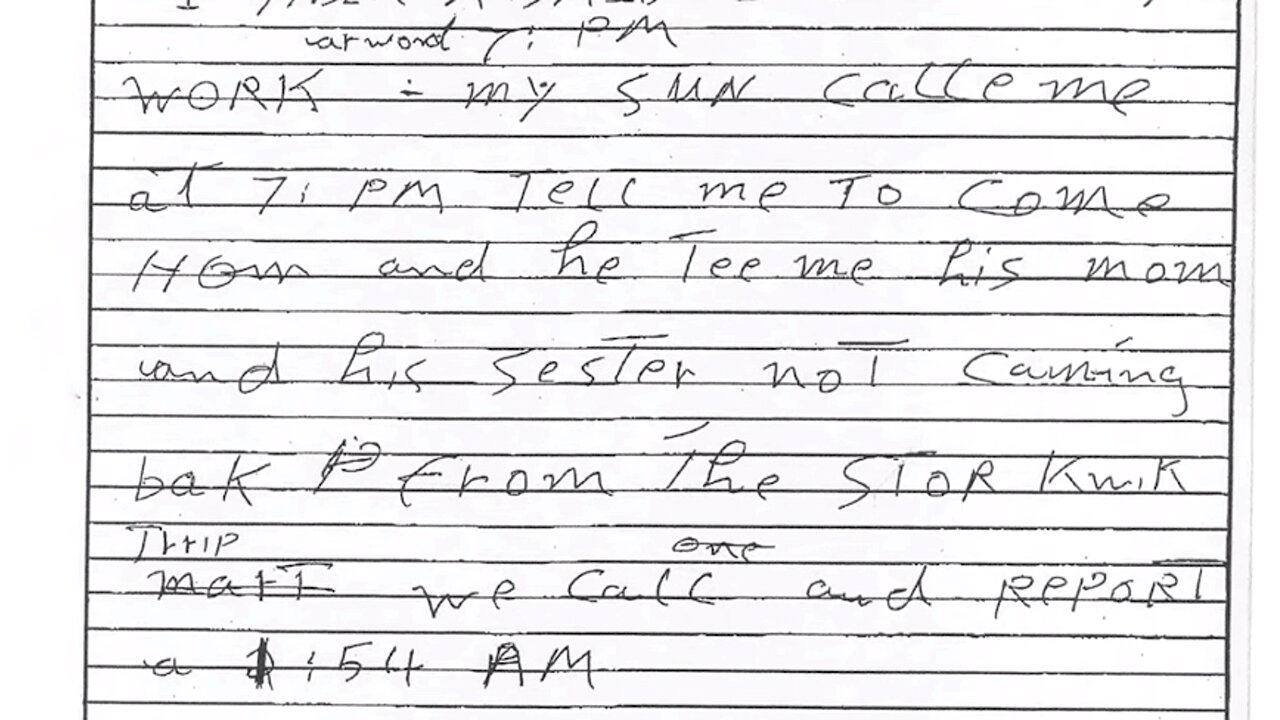 arword 7: PM
WORK - my SUN calle me
at 7: PM Tell me To come
Hom and he Tee me his mom
and his sesTer noT Caming
bak from The STOR Kwik
Thrip one
marT we call and REPORT
a 1:54 AM